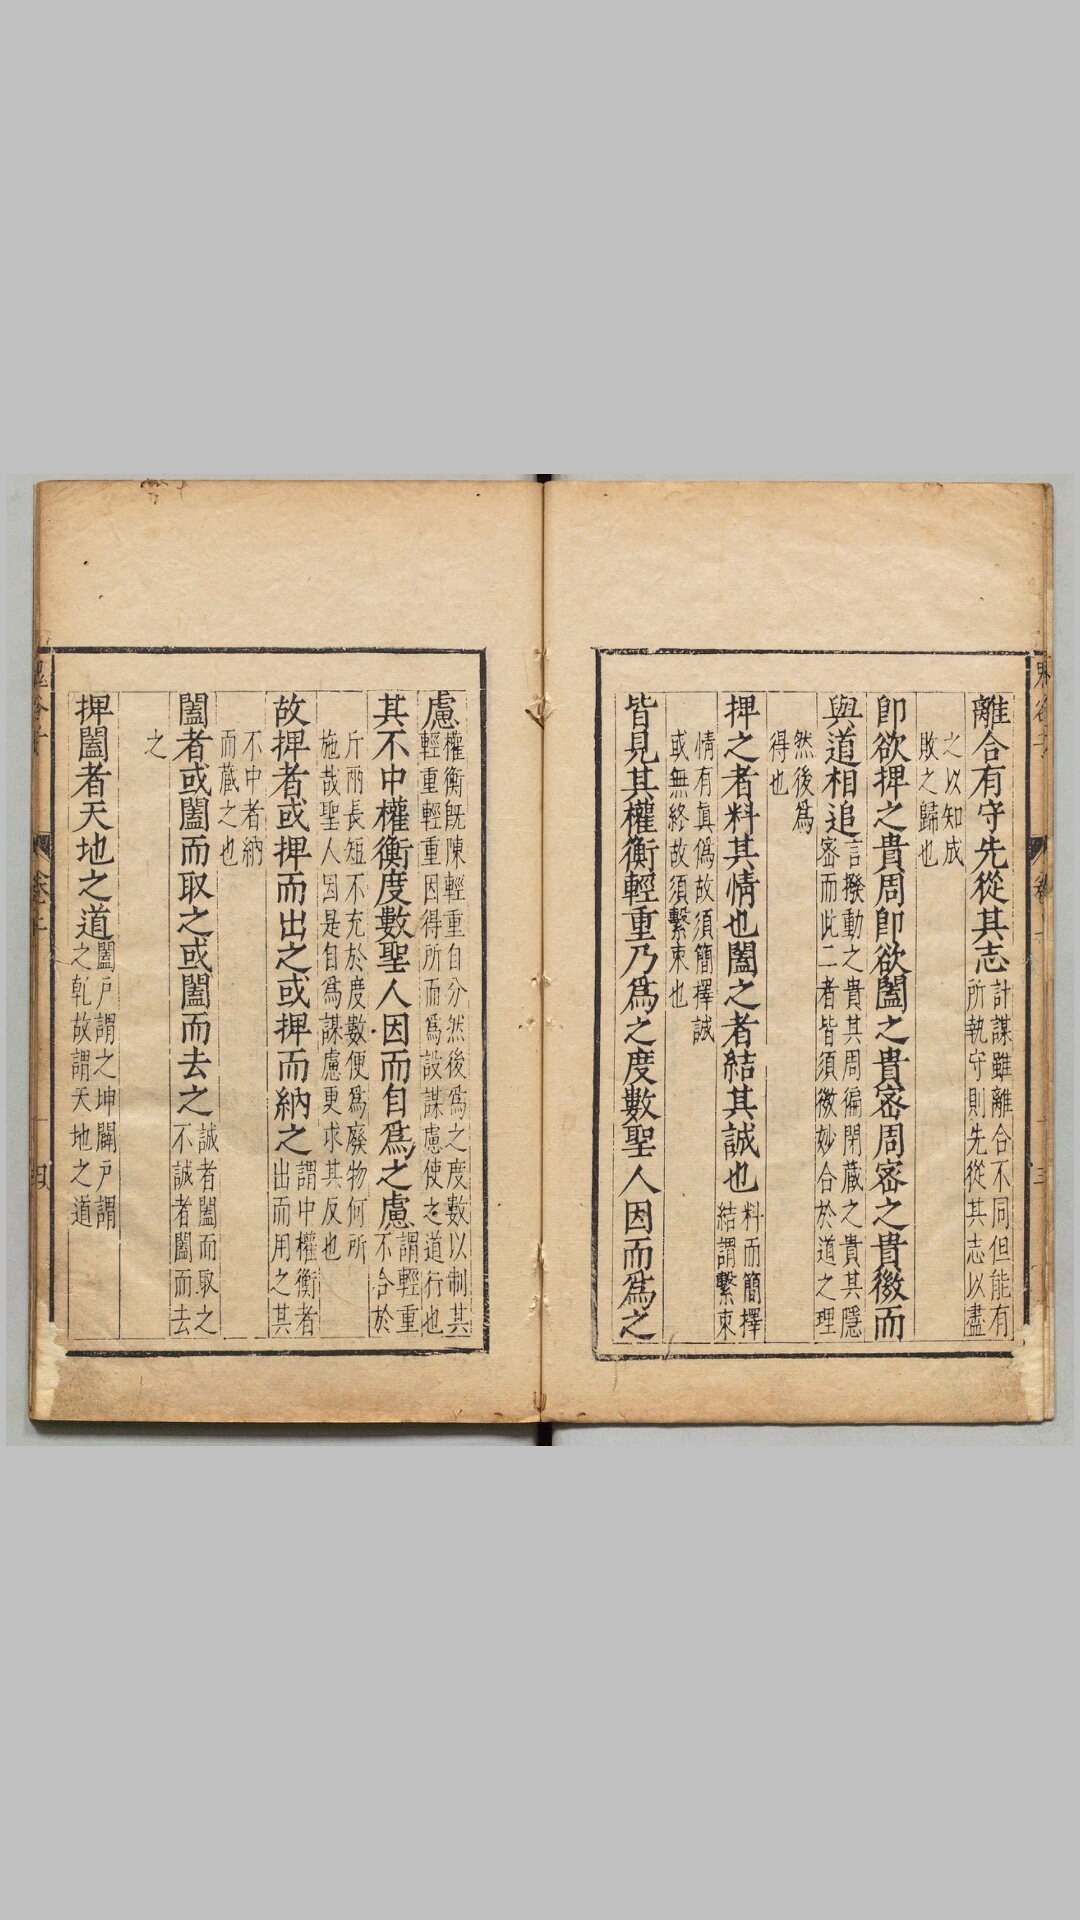 離合有守先從其志計謀雖離合不同但能有
所執守則先從其志以盡
之以知成
敗之歸也
即欲捭之貴周即欲闔之貴密周密之貴微而
與道相追言撥動之貴其周徧閉藏之貴其隱
密而此二者皆須微妙合於道之理
然後爲
得也
捭之者料其情也闔之者結其誠也料而簡擇
結謂繫束
情有眞僞故須簡擇誠
或無終故須繫束也
皆見其權衡輕重乃爲之度數聖人因而爲之
慮權衡旣陳輕重自分然後爲之度數以制其
輕重輕重因得所而爲設謀慮使之道行也
其不中權衡度數聖人因而自爲之慮謂輕重
不合於
斤兩長短不充於度數便爲廢物何所
施哉聖人因是自爲謀慮更求其反也
故捭者或捭而出之或捭而納之謂中權衡者
出而用之其
不中者納
而藏之也
闔者或闔而取之或闔而去之誠者闔而取之
不誠者闔而去
之
捭闔者天地之道闔戶謂之坤闢戶謂
之乾故謂天地之道